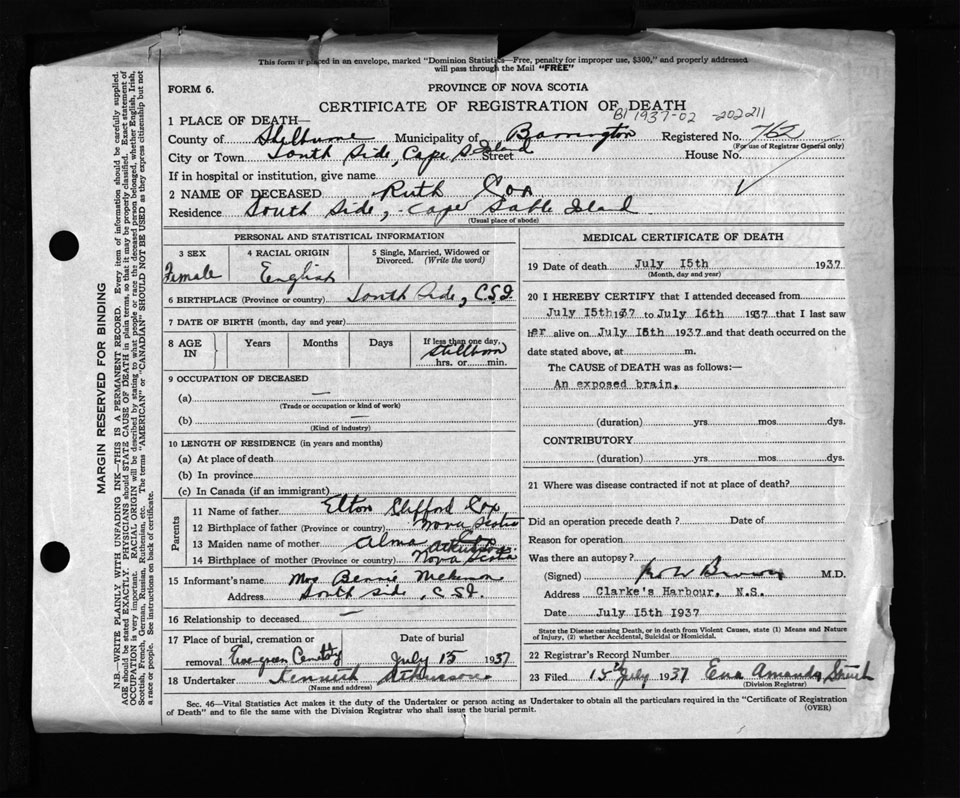 This form if placed in an envelope, marked "Dominion Statistics—Free, penalty for improper use, $300," and properly addressed
will pass through the Mail "FREE"
FORM 6.
PROVINCE OF NOVA SCOTIA
CERTIFICATE OF REGISTRATION OF DEATH
B1 1937-02 -202211
1 PLACE OF DEATH—
County of Shelburne Municipality of Barrington Registered No. 762
(For use of Registrar General only)
City or Town South Side, Cape S. Island Street House No.
If in hospital or institution, give name
2 NAME OF DECEASED Ruth Cox
Residence South Side, Cape Sable Island
(Usual place of abode)
PERSONAL AND STATISTICAL INFORMATION
3 SEX
Female
4 RACIAL ORIGIN
English
5 Single, Married, Widowed or
Divorced. (Write the word)
6 BIRTHPLACE (Province or country) South Side, C.S.I.
7 DATE OF BIRTH (month, day and year)
8 AGE
IN
Years
Months
Days
If less than one day,
stillborn
hrs. or min.
9 OCCUPATION OF DECEASED
(a) —
(Trade or occupation or kind of work)
(b) —
(Kind of industry)
10 LENGTH OF RESIDENCE (in years and months)
(a) At place of death
(b) In province
(c) In Canada (if an immigrant)
Parents
11 Name of father Elton Clifford Cox
12 Birthplace of father (Province or country) Nova Scotia
13 Maiden name of mother Alma Atkinson
14 Birthplace of mother (Province or country) Nova Scotia
15 Informant's name Mrs Bennie
Address South Side, C.S.I.
16 Relationship to deceased —
17 Place of burial, cremation or Date of burial
removal Evergreen Cemetery July 15 1937
18 Undertaker Kenneth Atkinson
(Name and address)
MEDICAL CERTIFICATE OF DEATH
19 Date of death July 15th 1937
(Month, day and year)
20 I HEREBY CERTIFY that I attended deceased from
July 15th 1937 to July 16th 1937 that I last saw
her alive on July 15th 1937 and that death occurred on the
date stated above, at m.
The CAUSE of DEATH was as follows:—
An exposed brain.
(duration) yrs mos dys.
CONTRIBUTORY
(duration) yrs. mos. dys.
21 Where was disease contracted if not at place of death?
Did an operation precede death? Date of
Reason for operation
Was there an autopsy?
(Signed) Brown M.D.
Address Clarke's Harbour, N.S.
Date July 15th 1937
State the Disease causing Death, or in death from Violent Causes, state (1) Means and Nature
of Injury, (2) whether Accidental, Suicidal or Homicidal.
22 Registrar's Record Number
23 Filed 15th July 1937 Eva Amanda Smith
(Division Registrar)
Sec. 46—Vital Statistics Act makes it the duty of the Undertaker or person acting as Undertaker to obtain all the particulars required in the "Certificate of Registration
of Death" and to file the same with the Division Registrar who shall issue the burial permit.
(OVER)
MARGIN RESERVED FOR BINDING
N.B.—WRITE PLAINLY WITH UNFADING INK—THIS IS A PERMANENT RECORD. Every item of information should be carefully supplied.
AGE should be stated EXACTLY. PHYSICIANS should STATE CAUSE OF DEATH in plain terms, so that it may be properly classified. Exact statement of
OCCUPATION is very important. RACIAL ORIGIN will be described by stating to what people or race the deceased person belonged, whether English, Irish,
Scottish, French, German, Russian, Ruthenian, etc. The terms "AMERICAN" or "CANADIAN" SHOULD NOT BE USED as they express citizenship but not
a race or people. See instructions on back of certificate.